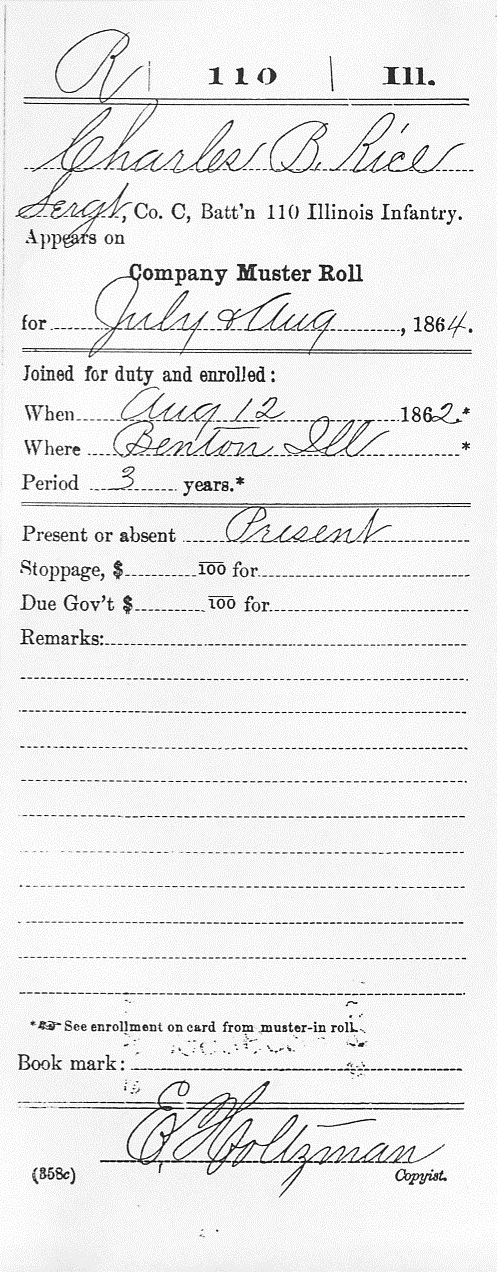 R | 110 | Ill.
Charles B. Rice
Sergt, Co. C, Batt'n 110 Illinois Infantry.
Appears on
Company Muster Roll
for July & Aug, 1864.
Joined for duty and enrolled:
When Aug 12 1862.*
Where Benton Ill *
Period 3 years.*
Present or absent Present
Stoppage, $ 100 for
Due Gov't $ 100 for
Remarks:
*☞ See enrollment on card from muster-in roll.
Book mark:
E. Holtzman
(358c) Copyist.